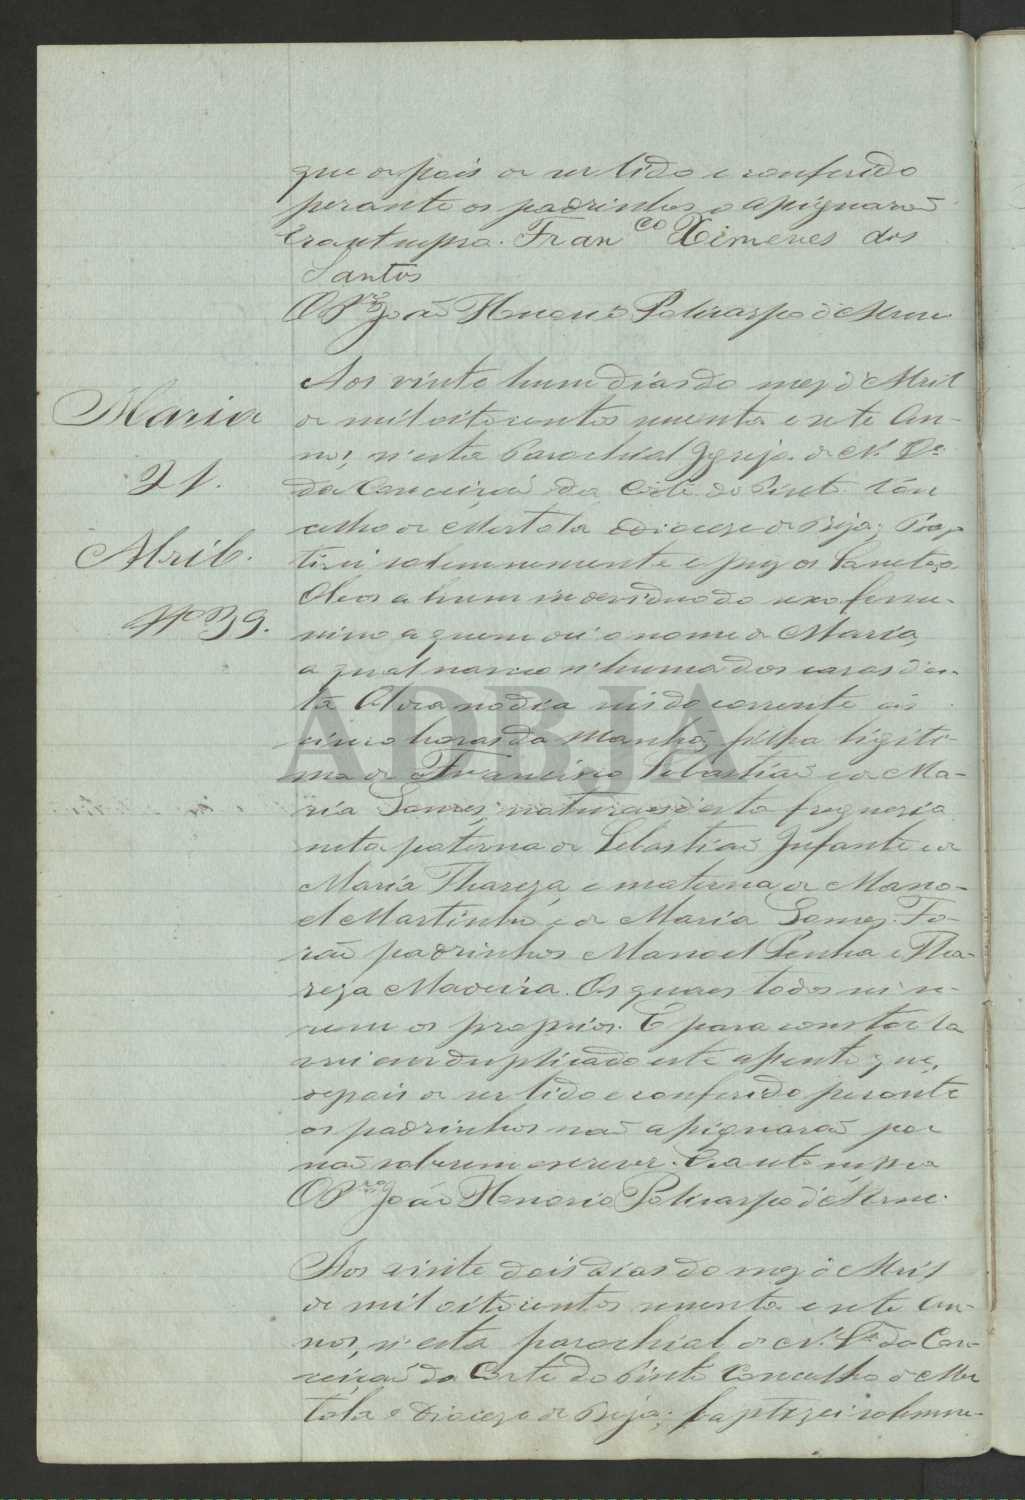 que depois de ser lido e conferido
perante os padrinhos o assignarão
Era ut supra. Fran co Ximenes dos
Santos
O Pro João Honorio Policarpo
Aos vinte hum dias do mez d'Abril
de mil oitocentos secenta e sete An-
Maria
nos, n'esta Parochial Igreja de N. Sa
da Conceição da Corte do Pinto Con
21.
celho de Mertola e Diocese de Beja; Bap
tizei solemnemente e puz os Sanctos
Abril.
Oleos a hum individuo do sexo femi-
nino a quem dei o nome de Maria,
No 39.
a qual nasceo n'huma das casas d'es-
ta Aldea no dia seis do corrente ás
cinco horas da manhã, filha ligiti-
ma de Francisco Sebastião e de Ma-
ria Gomes; naturaes d'esta freguesia
neta paterna de Sebastião Infante e de
Maria Thareza, e materna de Mano-
el Martinho, e de Maria Gomes. Fo-
rão padrinhos Manoel Penha e Tha-
reza Madeira. Os quaes todos sei se-
rem os proprios. E para constar la
vrei em duplicado este assento que,
depois de ser lido e conferido perante
os padrinhos não assignarão por
não saberem escrever. Era ut supra
O Pro João Honorio Policarpo
Aos vinte dois dias do mez d'Abril
de mil oitocentos secenta e sete An-
nos, n'esta parochial de N. Sa da Con-
ceição da Corte do Pinto Concelho de Mer
tola e Diocese de Beja; baptizei solemne-
ADBJA